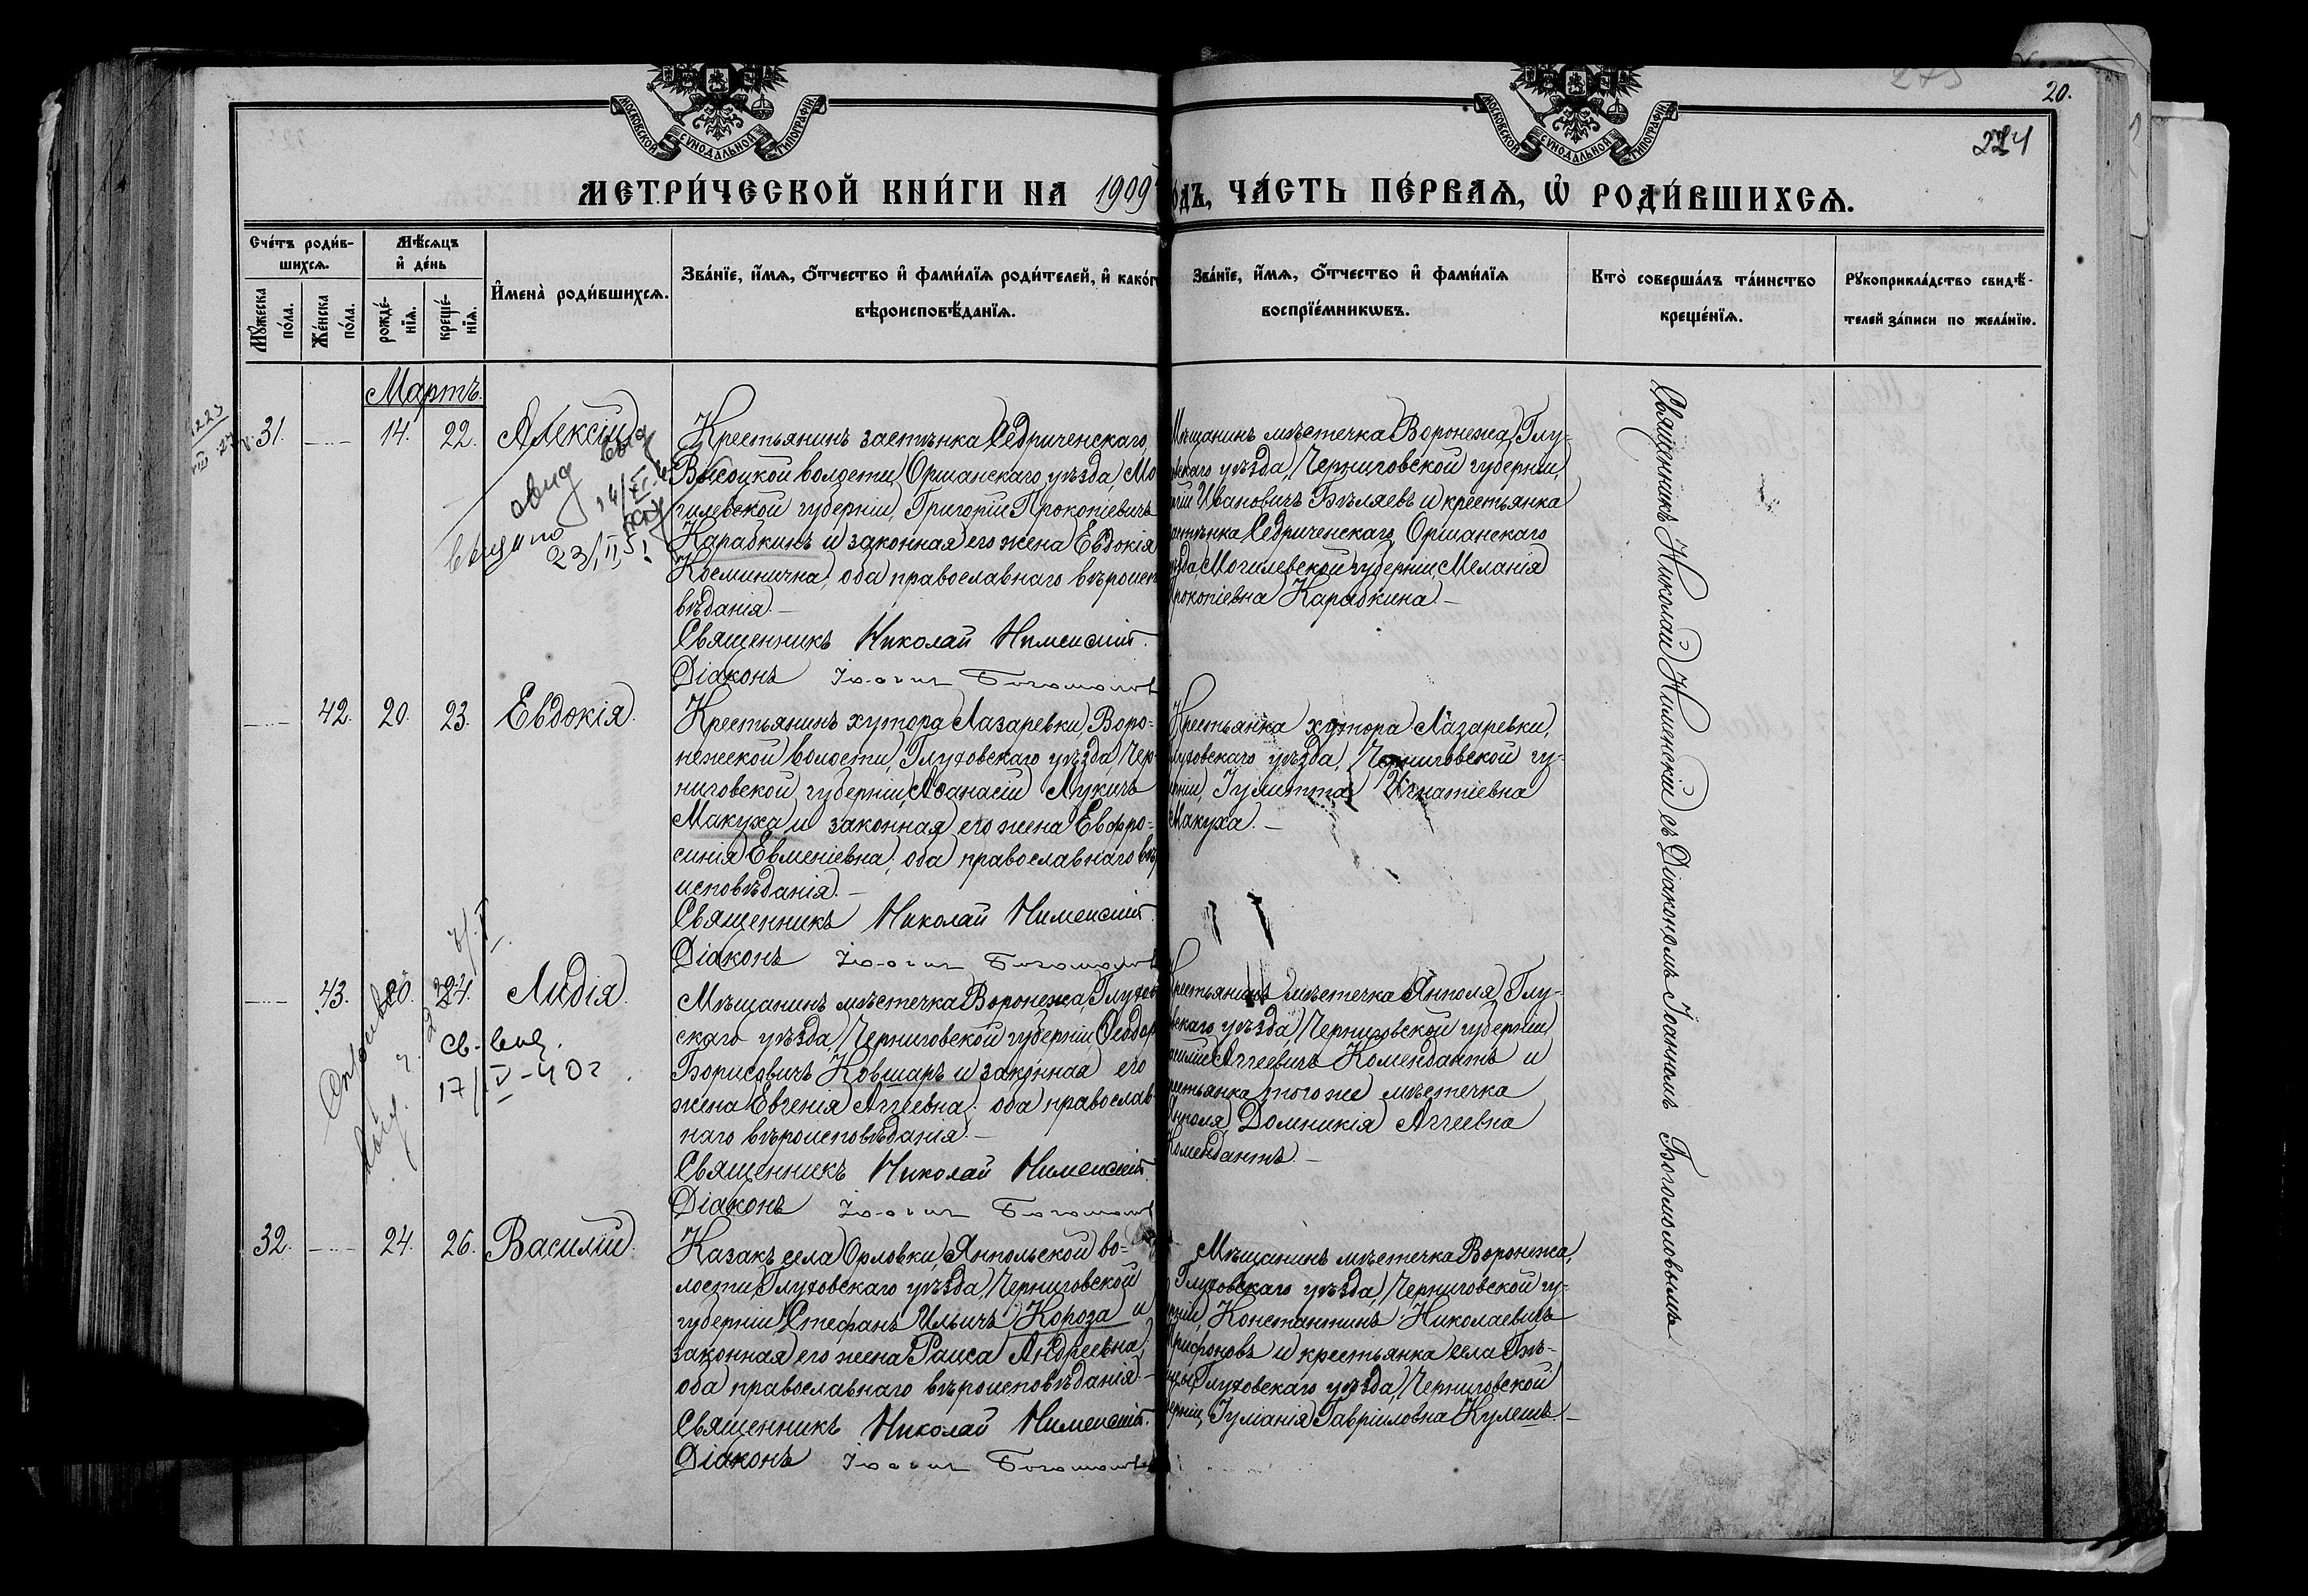 МОСКОВСКОЙ СѴНОДАЛЬНОЙ ТИПОГРАФІИ
МОСКОВСКОЙ СѴНОДАЛЬНОЙ ТИПОГРАФІИ
20.
МЕТРИ́ЧЕСКОЙ КНИ́ГИ НА 1909
ОДЪ, ЧА́СТЬ ПЕ́РВАѦ, Ѡ҆ РОДИ́ВШИХСѦ.
Сче́тъ роди́вшихсѧ.
Мѣ́сѧцъ и҆ де́нь
Мꙋ́жеска по́ла.
Же́нска по́ла.
рожде́нїѧ.
креще́нїѧ.
И҆мена̀ роди́вшихсѧ.
Зва́нїе, и҆́мѧ, ѻ҆́тчество и҆ фами́лїѧ роди́телей, и҆ како́г
вѣроисповѣ́данїѧ.
Зва́нїе, и҆́мѧ, ѻ҆́тчество и҆ фами́лїѧ
воспрїе́мникѡвъ.
Кто̀ соверша́лъ та́инство
креще́нїѧ.
Рꙋкоприкла́дство свидѣ́-
телей за́писи по жела́нїю.
Мартъ.
31. 14. 22. Алексій
Крестьянинъ застѣнка Седриченскаго,
Высоцкой волости, Оршанскаго уѣзда, Мо
гилевской губерніи, Григорій Прокопіевичъ
Карабкинъ и законная его жена Евдокія
Косминична, оба православнаго вѣроисп
вѣданія.
Священникъ Николай Нименскій
Діаконъ
Мѣщанинъ мѣстечка Воронежа, Глу-
вскаго уѣзда, Черниговской губерніи,
Ивановичъ Бѣляевъ и крестьянка
астѣнка Седриченскаго, Оршанскаго
уѣзда, Могилевской губерніи, Меланія
рокопіевна Карабкина.
42. 20. 23. Евдокія.
Крестьянинъ хутора Лазаревки, Воро-
нежской волости, Глуховскаго уѣзда, Чер
ниговской губерніи, Аѳанасій Лукичъ
Макуха и законная его жена Евфро-
синія Евменіевна, оба православнаго вѣ
исповѣданія.
Священникъ Николай Нименскій
Діаконъ
Крестьянка хутора Лазаревки,
луховскаго уѣзда, Черниговской гу-
ерніи, Іулитта Игнатіевна
Макуха.
43. 20. 24. Лидія.
св.
17/IV-40г.
Мѣщанинъ мѣстечка Воронежа, Глухов
скаго уѣзда, Черниговской губерніи, Ѳеодор
Борисовичъ Ковшаръ и законная его
жена Евгенія Аггеевна, оба православ
наго вѣроисповѣданія.
Священникъ Николай Нименскій
Діаконъ
Крестьянинъ мѣстечка Янполя, Глу-
вскаго уѣзда, Черниговской губерніи
Аггеевичъ Комендантъ и
рестьянка того же мѣстечка
Янполя Домникія Аггеевна
Комендантъ.
32. 24. 26. Василій.
Казакъ села Орловки, Янпольской во-
лости, Глуховскаго уѣзда, Черниговской
губерніи Стефанъ Ильичъ Короза и
законная его жена Раиса Андреевна,
оба православнаго вѣроисповѣданія.
Священникъ Николай Нименскій.
Діаконъ
Мѣщанинъ мѣстечка Воронежа,
Глуховскаго уѣзда, Черниговской гу-
ерніи, Константинъ Николаевичъ
рифоновъ и крестьянка села
Глуховскаго уѣзда, Черниговской
ерніи, Іуліанія Гавріиловна Кулешъ.
Священникъ Николай Нименскій съ Діакономъ Іоанномъ Богомоловымъ